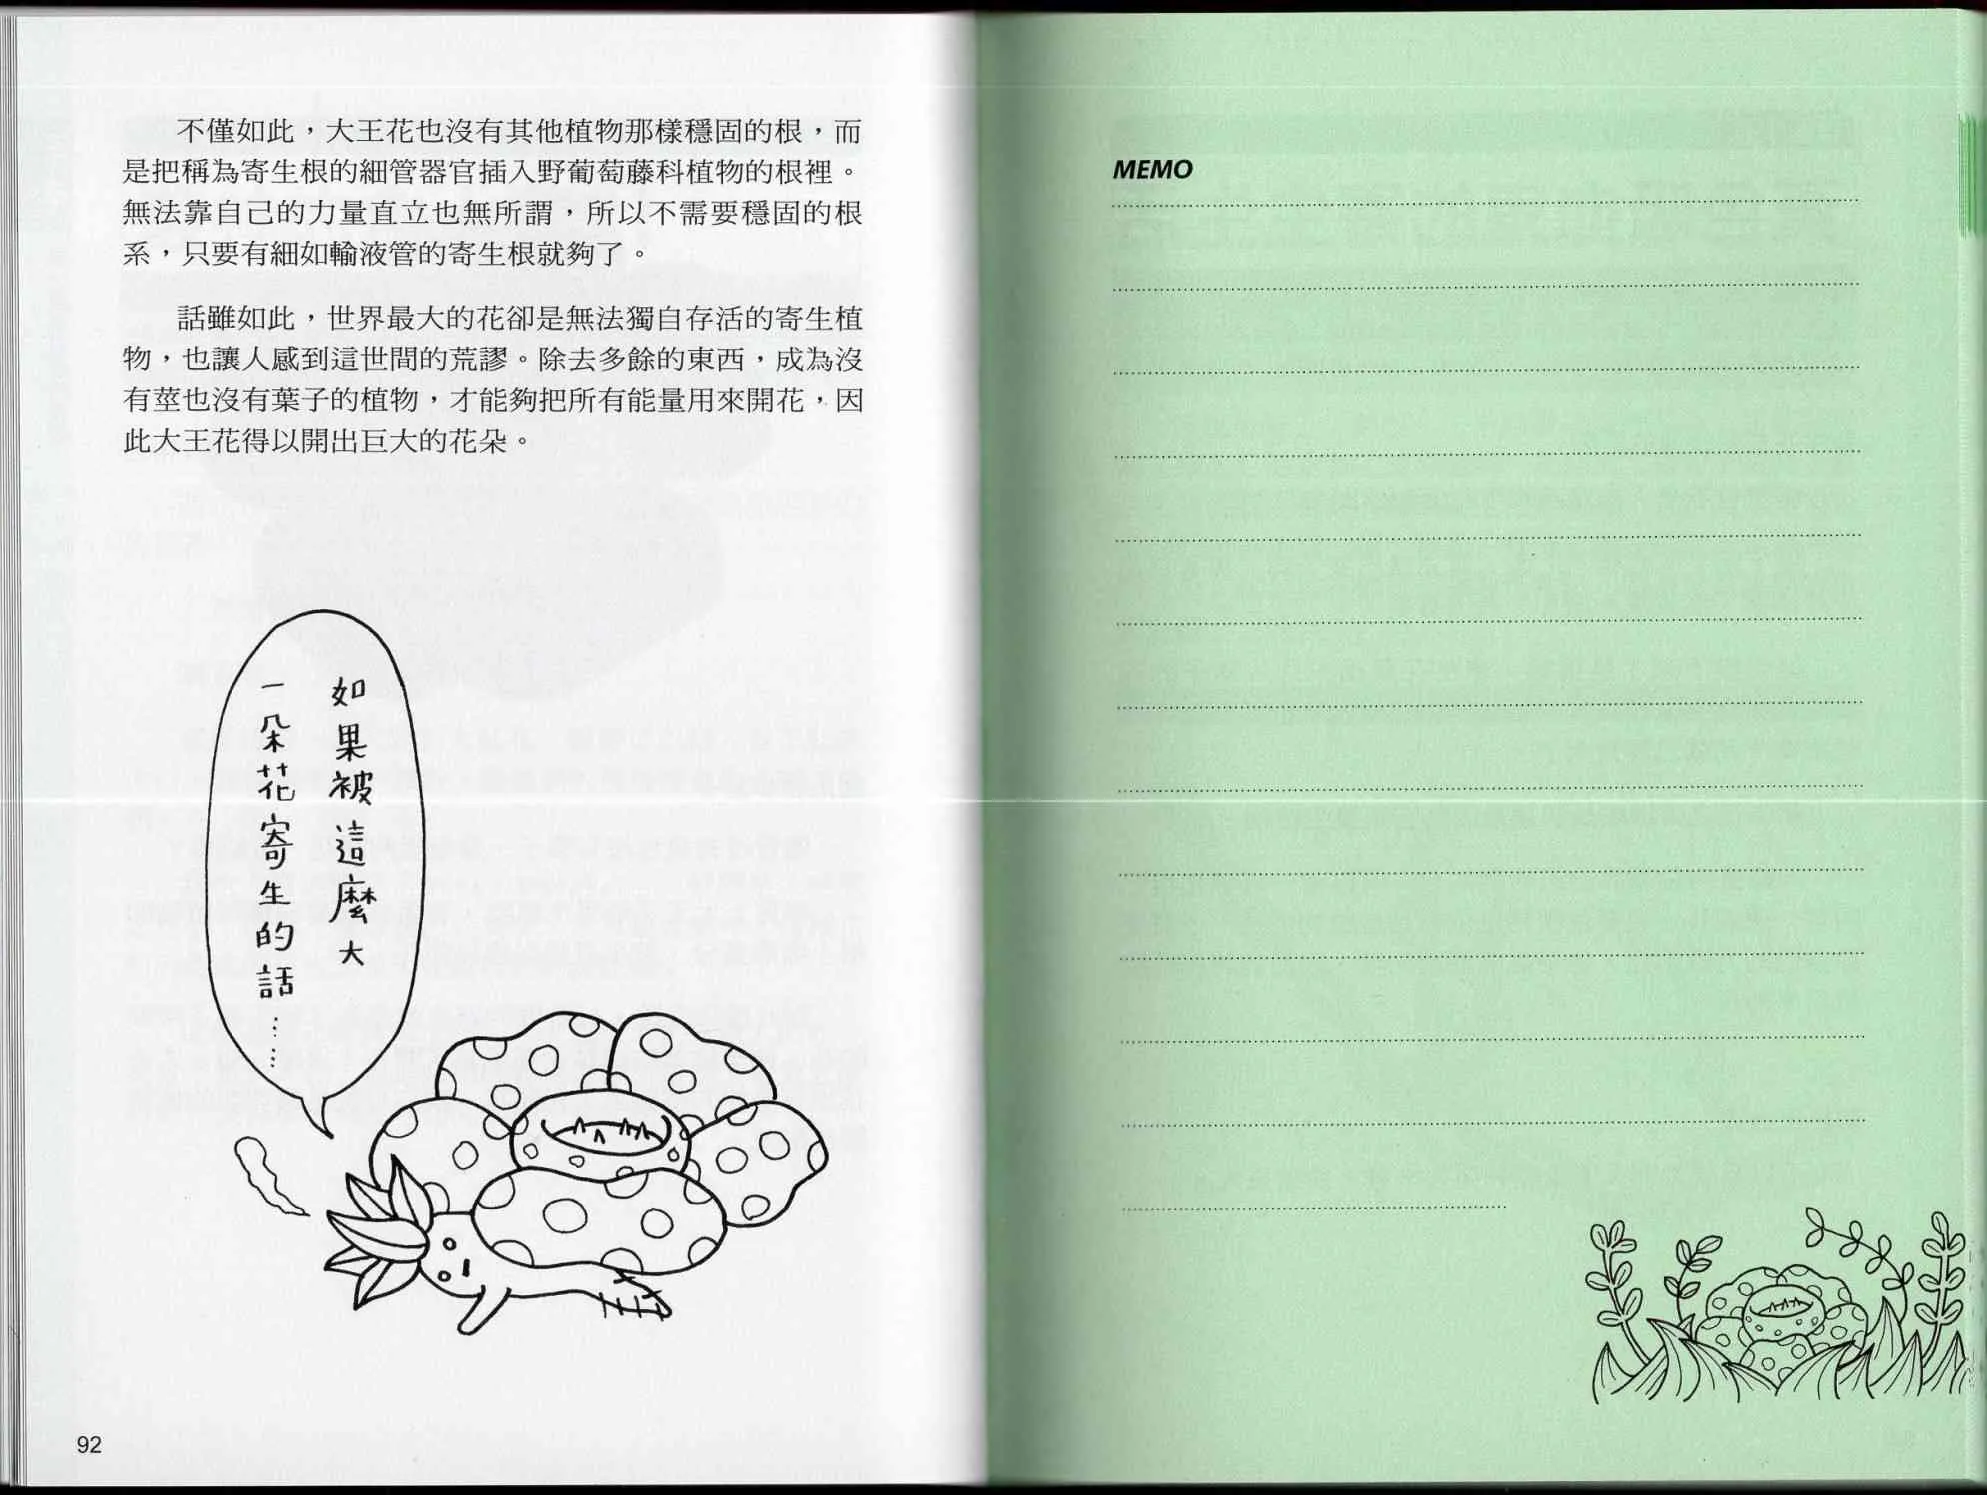 不僅如此，大王花也沒有其他植物那樣穩固的根，而
是把稱為寄生根的細管器官插入野葡萄藤科植物的根裡。
無法靠自己的力量直立也無所謂，所以不需要穩固的根
系，只要有細如輸液管的寄生根就夠了。
話雖如此，世界最大的花卻是無法獨自存活的寄生植
物，也讓人感到這世間的荒謬。除去多餘的東西，成為沒
有莖也沒有葉子的植物，才能夠把所有能量用來開花，因
此大王花得以開出巨大的花朵。
如果被這麼大
一朵花寄生的話……
92
MEMO